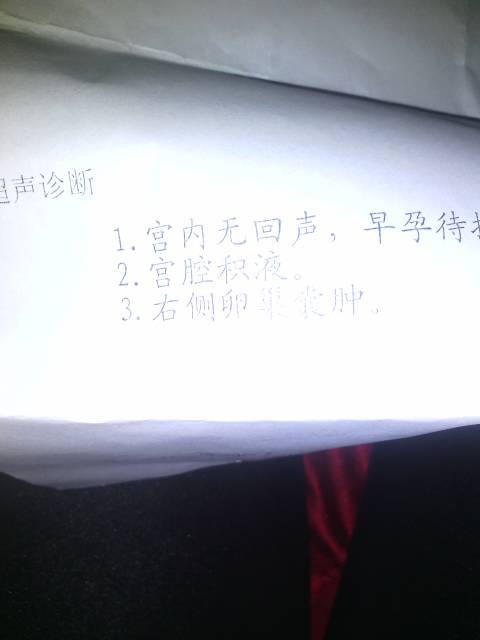 超声诊断
1.宫内无回声，早孕待
2.宫腔积液。
3.右侧卵巢囊肿。